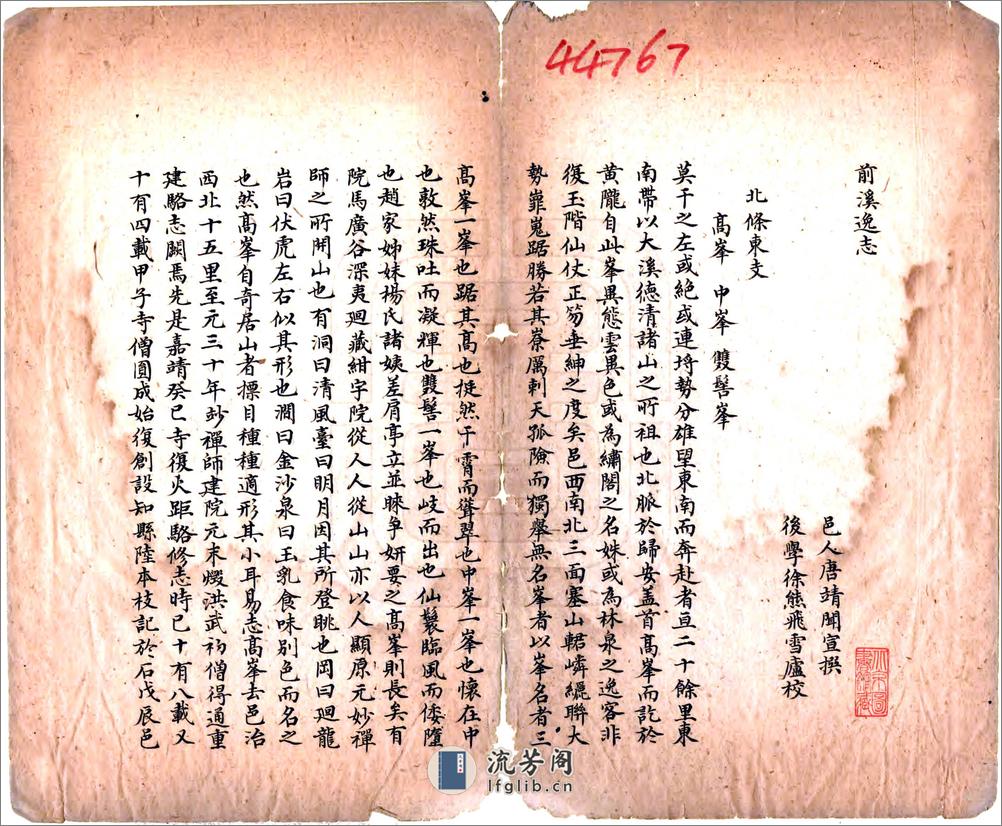 44767
前溪逸志
邑人唐靖聞宣撰
後學徐熊飛雪廬校
北條東支
高峯 中峯 雙髻峯
莫干之左或絶或連埒勢分雄望東南而奔赴者亘二十餘里東
南帶以大溪德清諸山之所祖也北脈於歸安盖首高峯而訖於
黄隴自此峯異態雲異色或為繡閣之名姝或為林泉之逸客非
復玉階仙仗正笏垂紳之度矣邑西南北三面塞山輑嶙纚聯大
勢嵟嵬踞勝若其嶚厲刺天孤險而獨舉無名峯者以峯名者三
高峯一峯也踞其高也挺然干霄而聳翠也中峯一峯也懷在中
也敦然珠吐而凝輝也雙髻一峯也歧而出也仙鬟臨風而倭墮
也趙家姊妹楊氏諸姨差肩亭立並睞争妍要之高峯則長矣有
院馬廣谷深夷廻藏紺宇院從人人從山山亦以人顯原元妙禪
師之所開山也有洞曰清風臺曰明月因其所登眺也岡曰廻龍
岩曰伏虎左右似其形也澗曰金沙泉曰玉乳食味别色而名之
也然高峯自奇居山者摽目種種適形其小耳易志高峯去邑治
西北十五里至元三十年玅禪師建院元末燬洪武初僧得通重
建駱志闕焉先是嘉靖癸巳寺復火距駱修志時已十有八載又
十有四載甲子寺僧圓成始復創設知縣陸本枝記於石戊辰邑
流芳阁
lfglib.cn